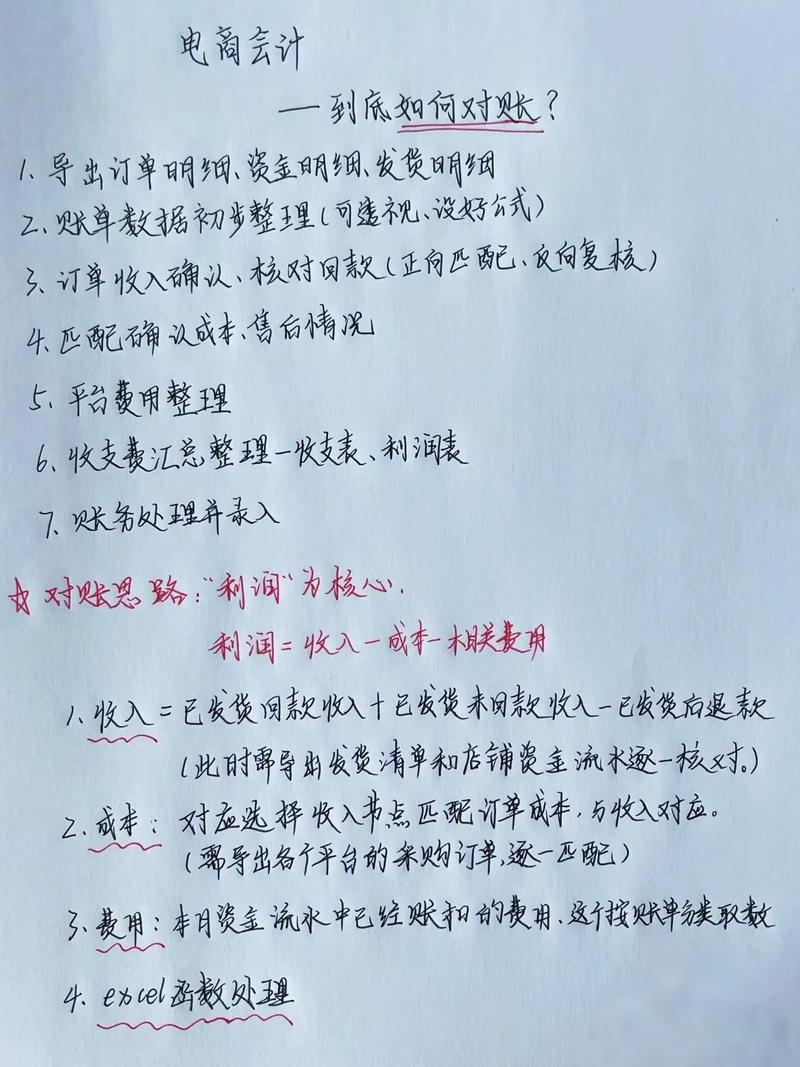 电商会计
—到底如何对账?
1. 导出订单明细、资金明细、发货明细
2. 账单数据初步整理(可透视、设好公式)
3. 订单收入确认、核对回款(正向匹配、反向复核)
4. 匹配确认成本、售后情况
5. 平台费用整理
6. 收支费汇总整理—收支表、利润表
7. 账务处理并录入
☆ 对账思路:“利润”为核心.
利润=收入-成本-相关费用
1. 收入=已发货回款收入+已发货未回款收入-已发货后退款
(此时需导出发货清单和店铺资金流水逐一核对。)
2. 成本: 对应选择收入节点匹配订单成本,与收入对应。
(需导出各个平台的采购订单,逐一匹配)
3. 费用: 本月资金流水中已经账扣的费用、这个按账单分类取数
4. excel函数处理